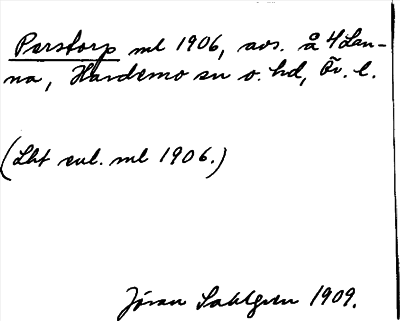 Perstorp ml 1906, avs. å 4 Lan-
na, Hardemo sn o. hd, Ör. l.
(Lht enl. ml 1906.)
Jöran Sahlgren 1909.